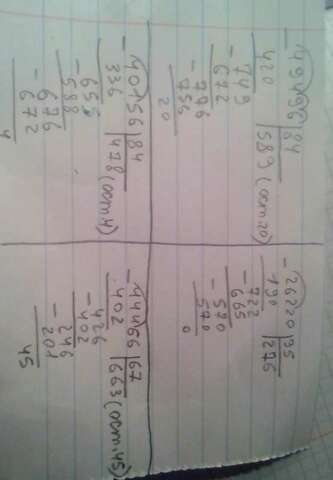 -49496|84
420 589 (ост.20)
-749
672
-776
756
20
-26220|95
190 276
-722
665
-570
570
0
-40156|84
336 478 (ост.4)
-655
588
-676
672
4
-44466|67
402 663 (ост.45)
-426
402
-246
201
45